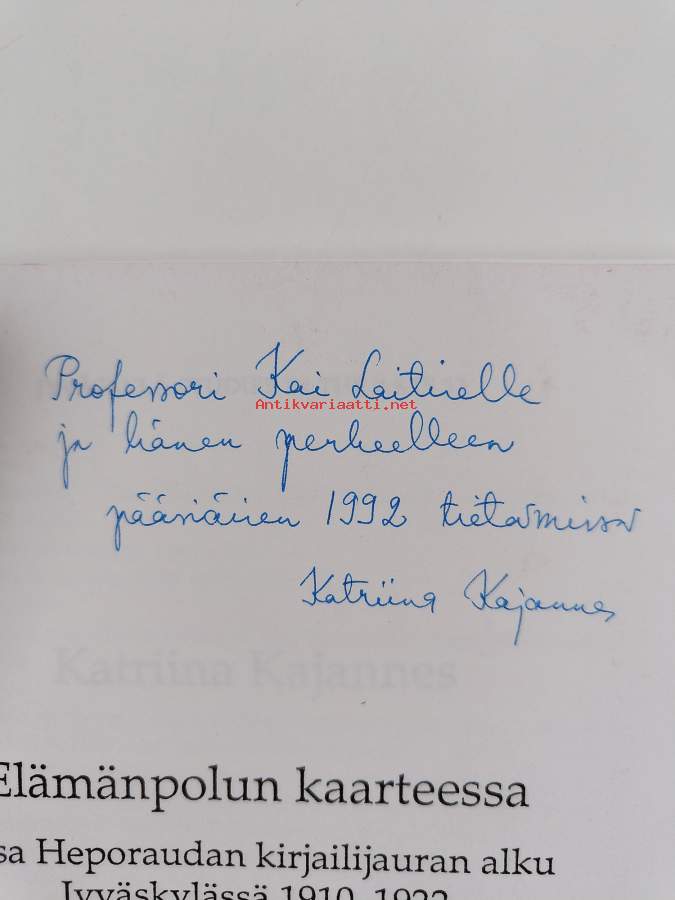 Professori Kai Laitiselle
Antikvariaatti.net
ja hänen perheelleen
pääsiäisen 1992 tietämissä
Katriina Kajannes
Katriina Kajannes
Elämänpolun kaarteessa
sa Heporaudan kirjailijauran alku
Jyväskylässä 1910-1922